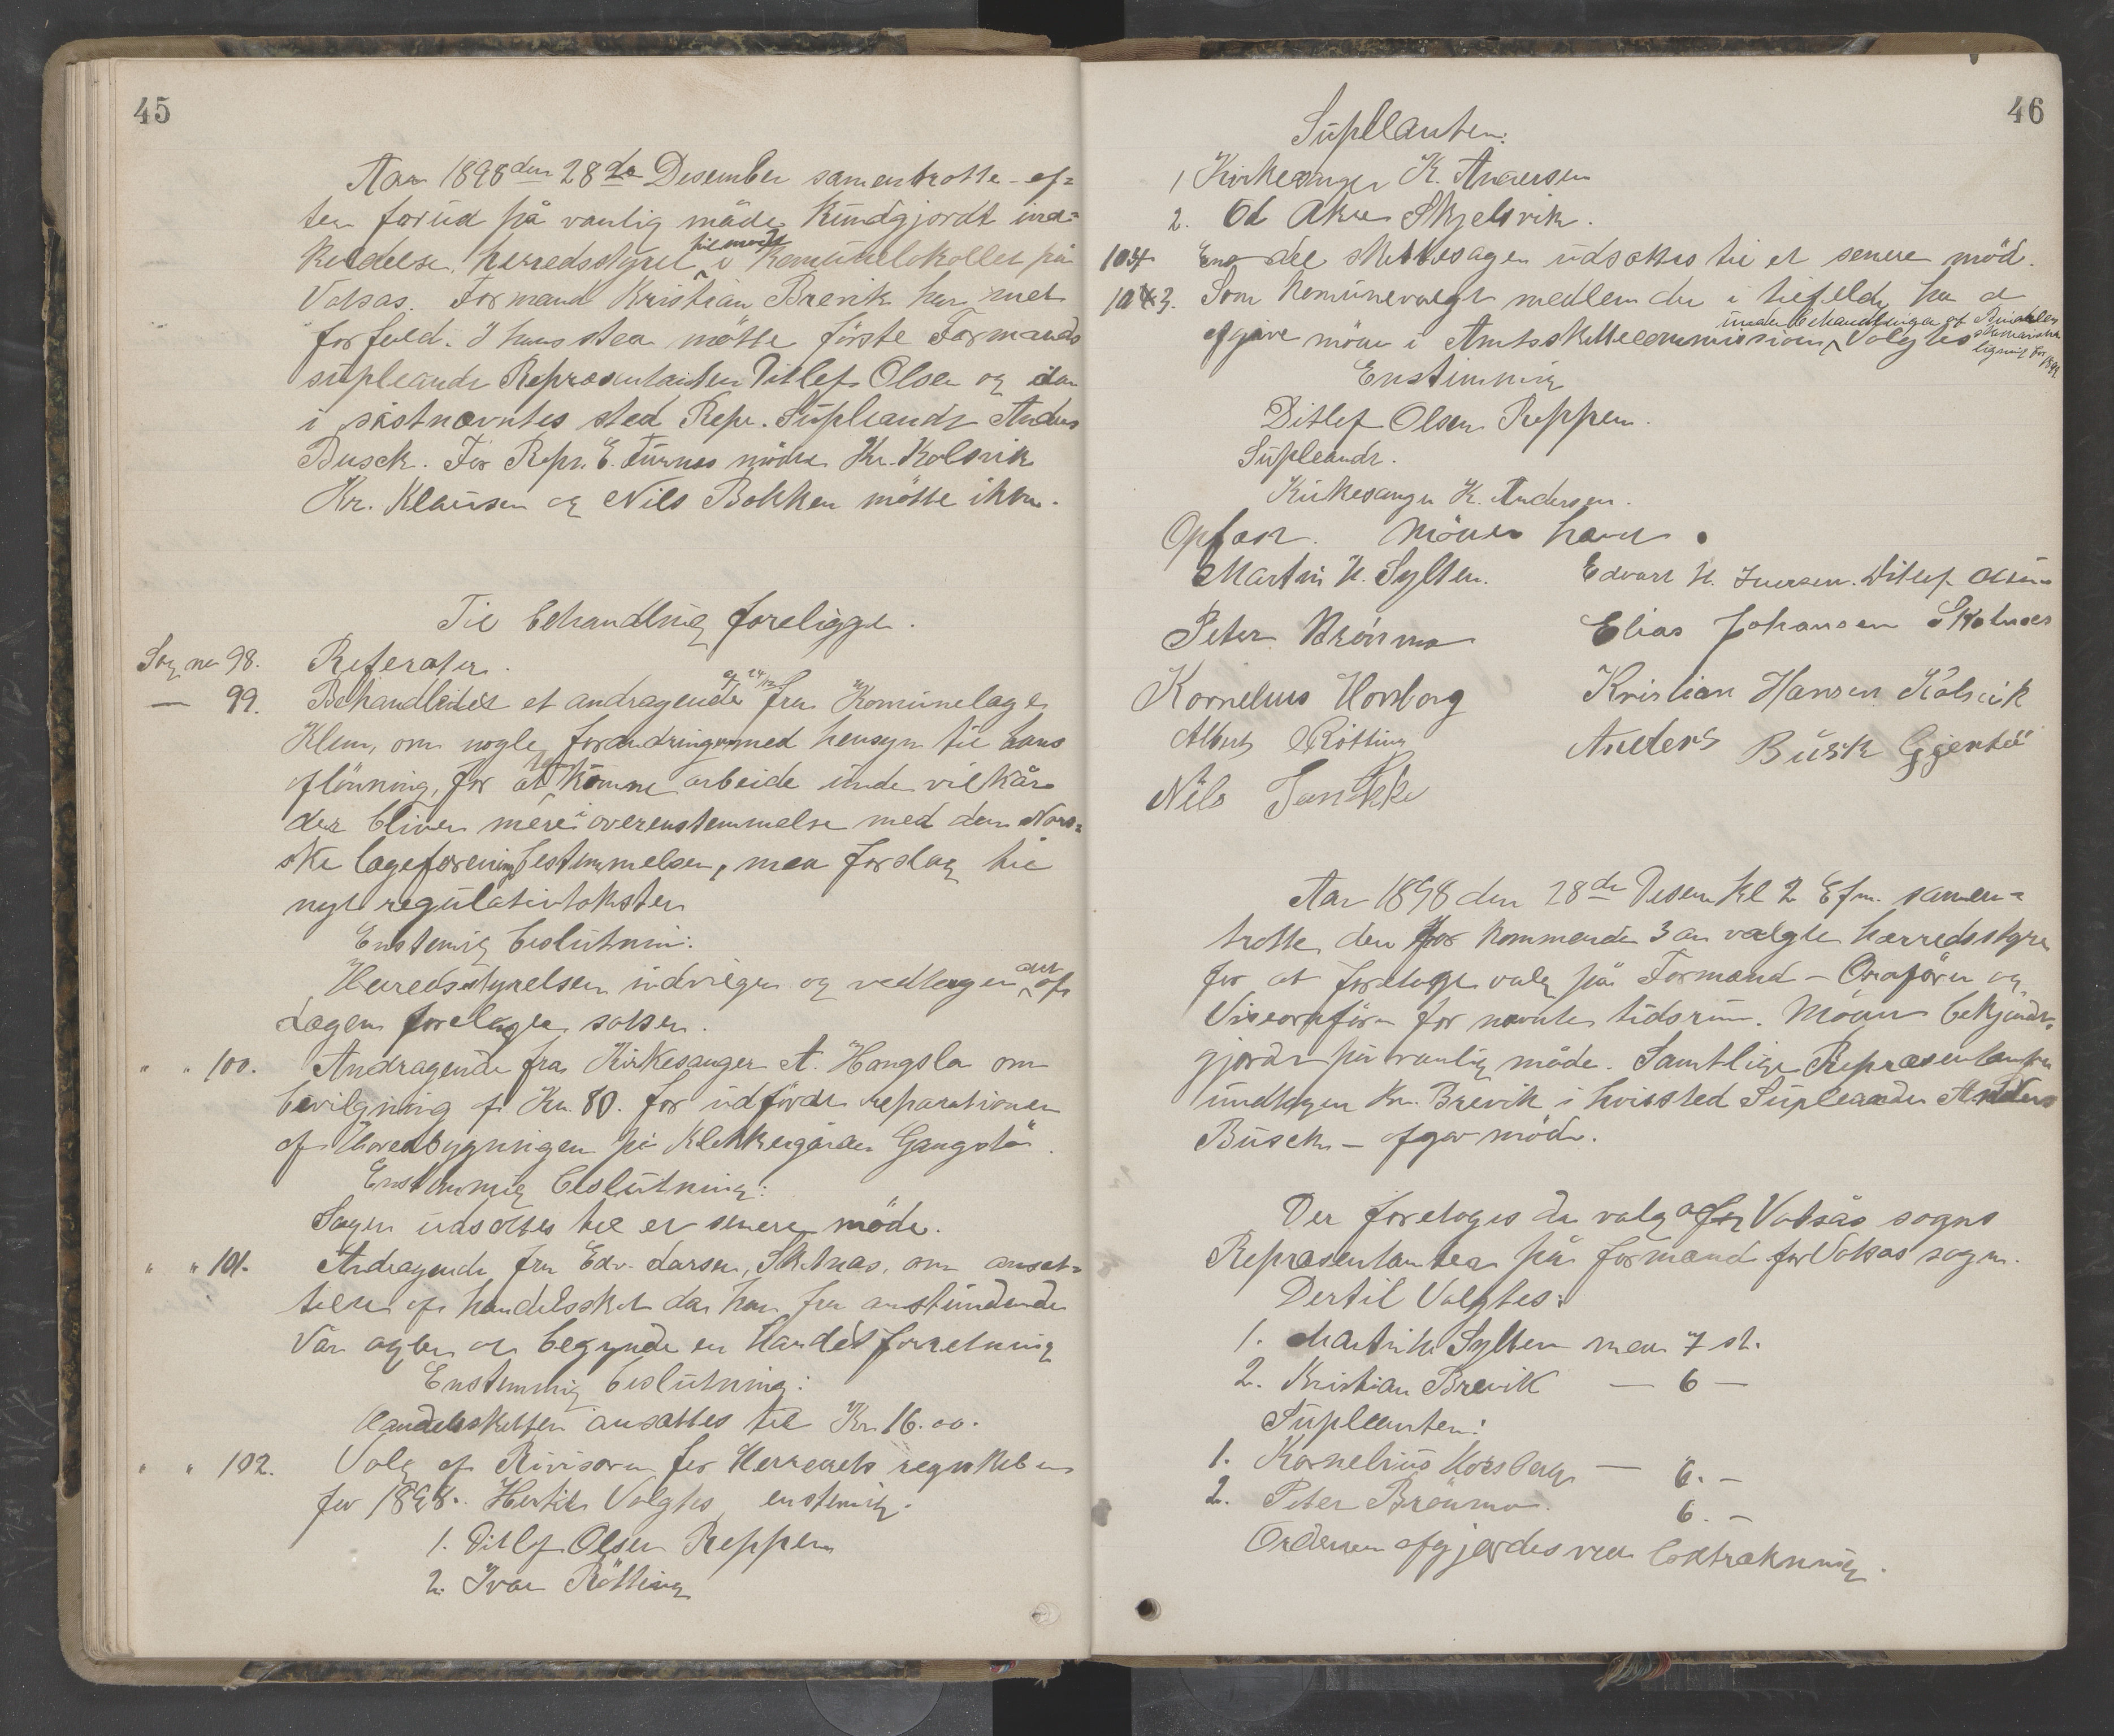 45
Aar 1898 den 28de Desember samentrotte ef=
ter forud på vanlig måde Kundgjordt ind=
Kaldelse, herredsstyret til møde i Komunelokallet på
Voksas. Formand Kristian Brevik har met
forfald. I hans sted mötte förste Formands
supleandt Repræsentanten Ditlef Olsen og
i sistnævntes sted Repr. Supleandt Anders
Busck. For Repr. E. Furnes mödte Kr. Kolsvik
Kr. Klausen og Nils Bokken mötte ikke.
Til behandling foreligger.
Sag no 98. Referater.
— 99. Behandledes et andragende af 24/12 fra Komunelæge
Klem, om nogle forandringer med hensyn til hans
aflönning, for at kunne arbeide under vilkår
der bliver mere i overenstemmelse med den Nors=
ske lægeforenings bestemmelser, med forslag til
nyt regulativtakster
Enstemig beslutning:
Herredsstyrelsen indvilger og vedtager den af
Lægen forelagte takster.
" " 100. Andragende fra Kirkesanger A. Hongslo om
bevilgning af Kr. 80. for udförde reparationer
af Hovedbygningen på Klokkergården Gangstö.
Enstemmig beslutning:
Sagen udsættes til et senere möde.
" " 101. Andragende fra Edv. Larsen, Skotnæs, om ansæt=
telse af handelsskat da han fra anstundende
Vår agter at begynde en Handelsforretning
Enstemmig beslutning:
Handelsskatten ansættes til Kr. 16.00.
" " 102. Valg af Rivisorer for Herredets regnskaber
for 1898. Hertil Valgtes enstemig.
1. Ditlef Olsen Reppen
2. Ivar Rötting
46
Supleanter:
1 Kirkesanger K. Andersen
2. Ol Aker Skjelsvik.
104 En del skattesager udsættes til et senere möde.
103. Som Komunevalgt medlem der i tilfælde har at
afgive möde i Amtsskattecommissionen under behandlingen af
Valgtes
ligning for 1899.
Enstimmig
Ditlef Olsen Reppen.
Supleandt.
Kirkesanger K. Andersen.
Oplæst. Möder hævet.
Martin H. Sylten. Edvart H. Iversen. Ditlef Olsen
Peter Brönmo Elias Johansen Skotnes
Kornelius Horsberg Kristian Hansen Kolsvik
Albert Rötting Anders Busk Gjertö
Nils
Aar 1898 den 28de Desem Kl 2 Efm. samen=
trotte den for kommende 3 aar valgte herredsstyre
for at foretage valg på Formand – Ordförer og
Viseordförer for nævnte tidsrum. Möder bekjendt=
gjordt på vanlig måde. Samtlige Repræsentanter
undtagen Kr. Brevik i hvis sted Supleander Anders
Busck – afgav möde.
Der foretoges da valg af Voksås sogns
Repræsentanter på formand for Voksas sogn.
Dertil Valgtes:
1. Martin H. Sylten med 7 st.
2. Kristian Brevik — 6 —
Supleanter:
1. Kornelius Horsberg — 6. –
2. Peter Brönmo. 6. –
Ordenen afgjordes ved lodtrækning.